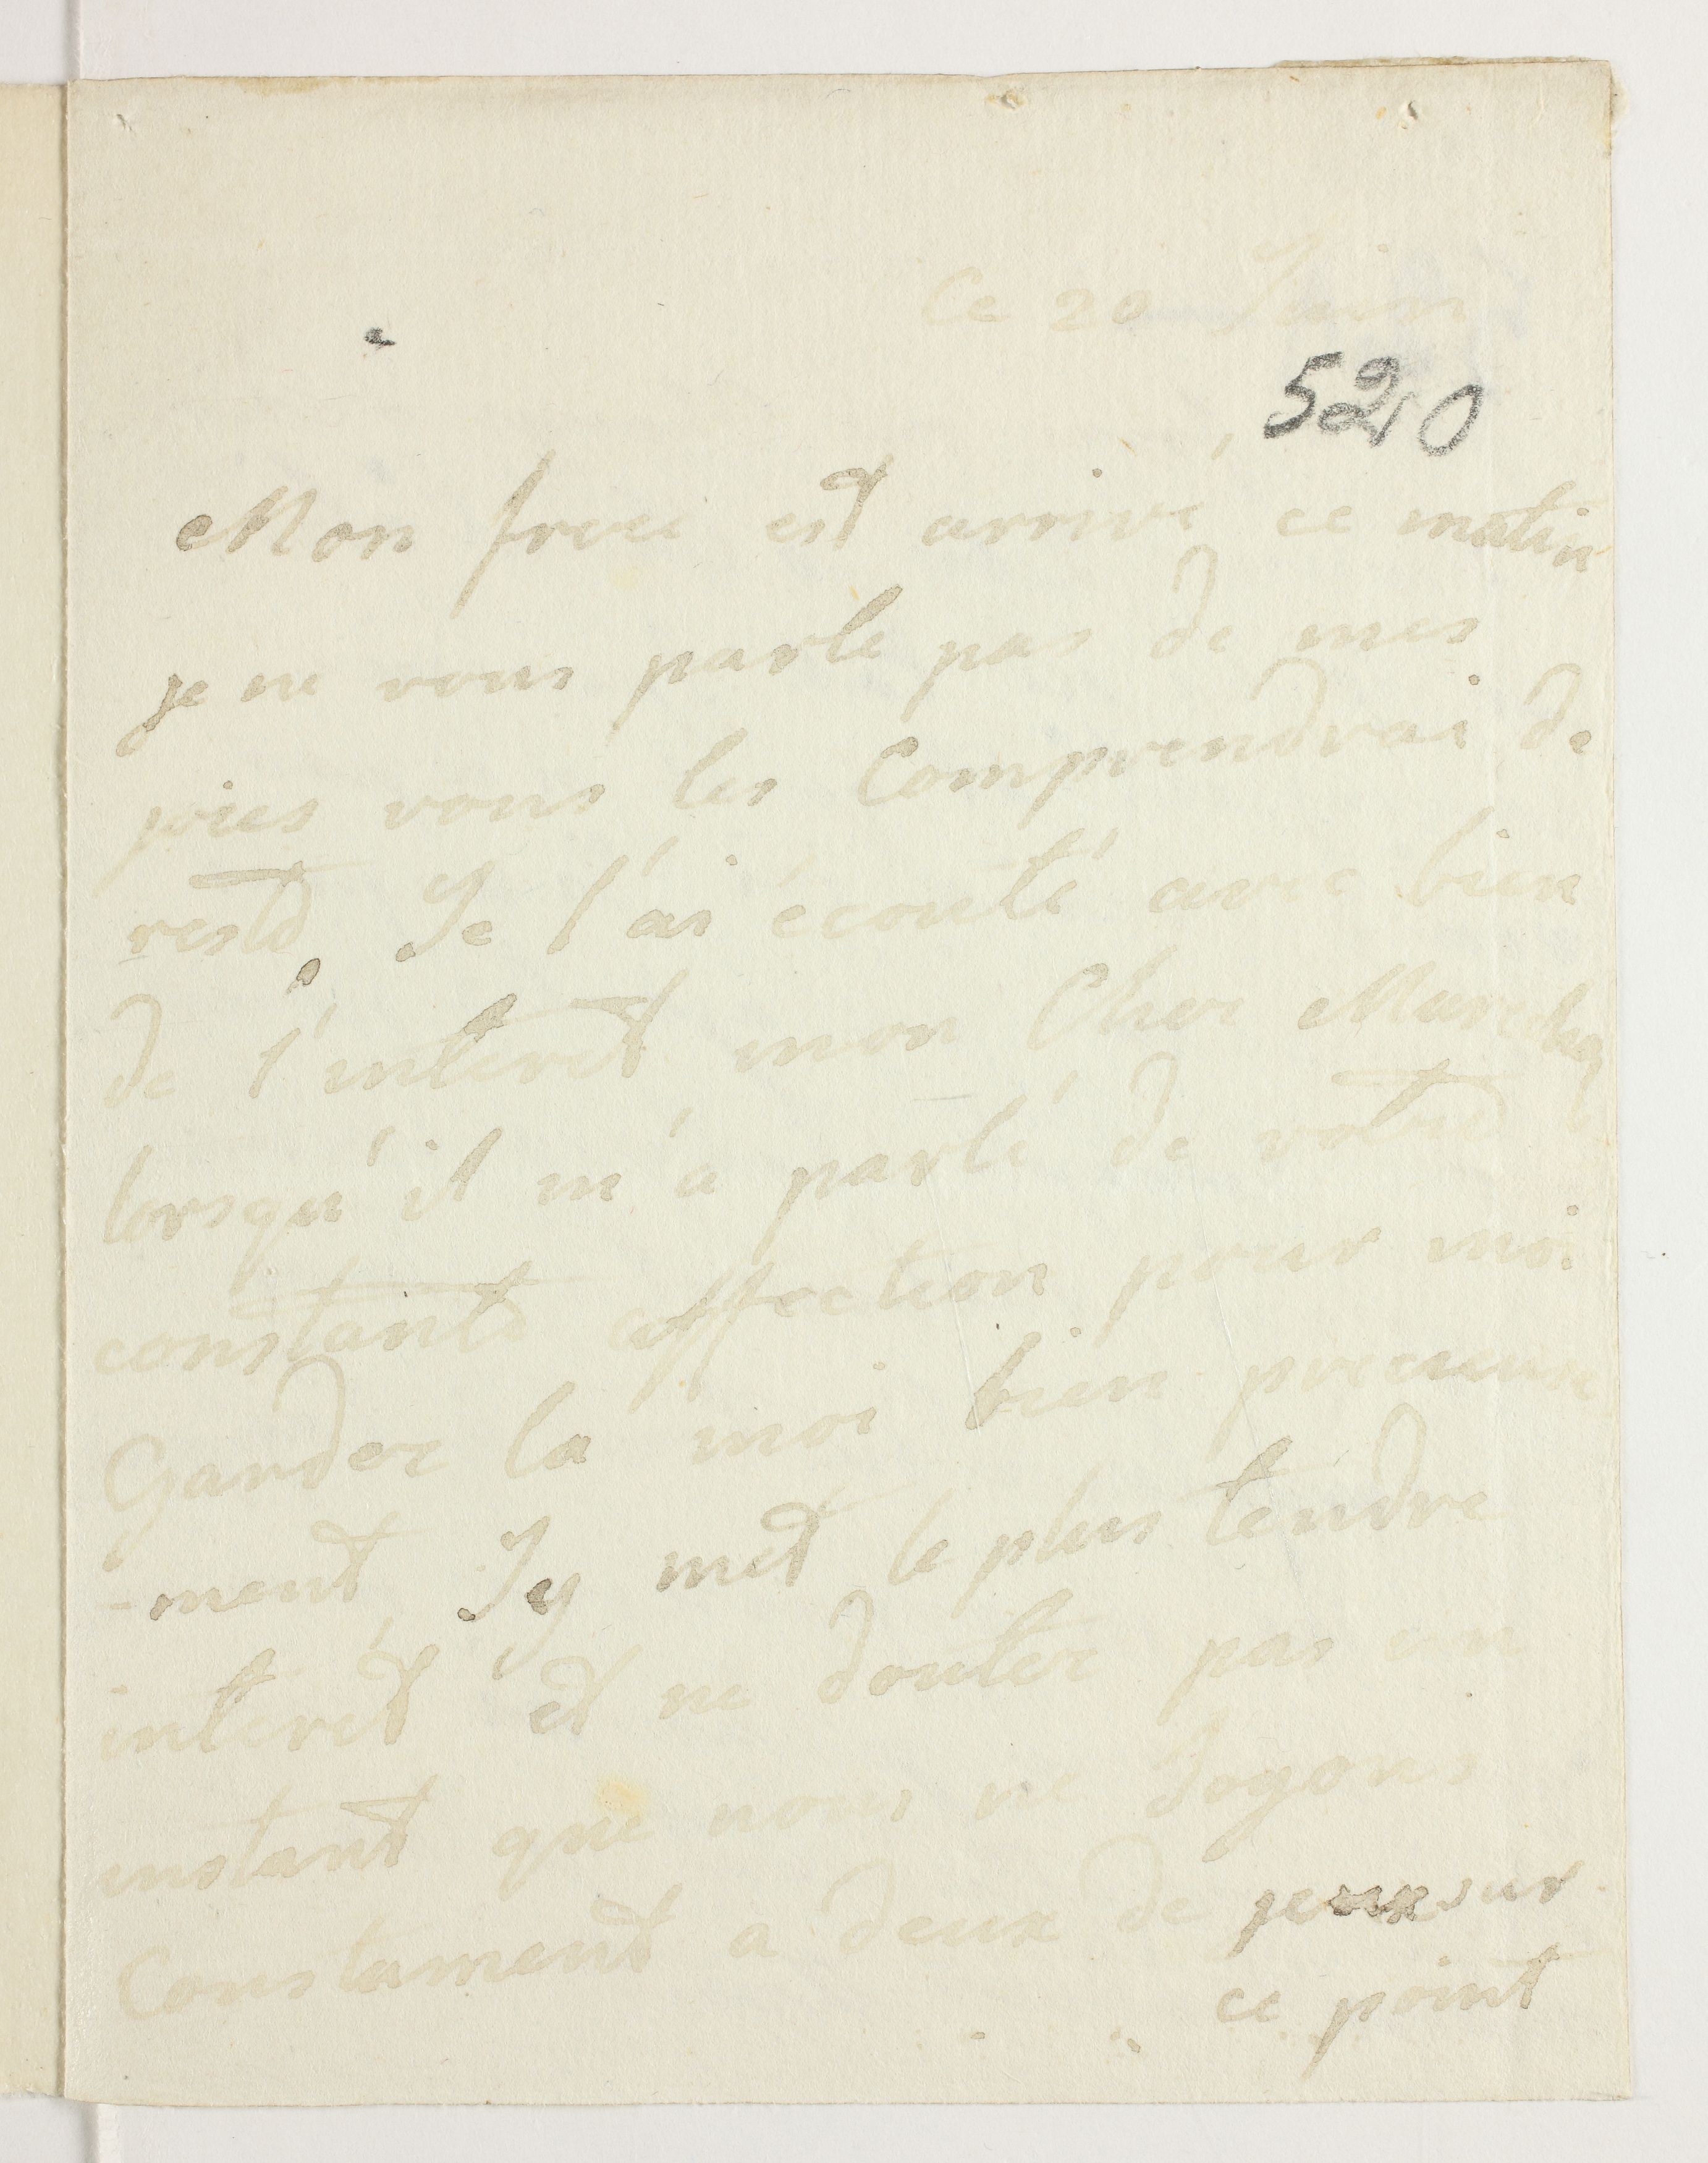 Ce 20 Juin
5210
Mon frere est arrivé ce matin
je ne vous parle pas de mes
joies vous les Comprendrai de
reste, Je l'ai écouté avec bien
de l'interet mon Cher Marechal
lorsqu'il m'a parlé de votre
constante affection pour moi
Garder la moi bien precieuse
-ment, Jy met le plus tendre
interet et ne douter pas un
instant que nous ne Soyons
Constament a deux de jeux sur
ce point